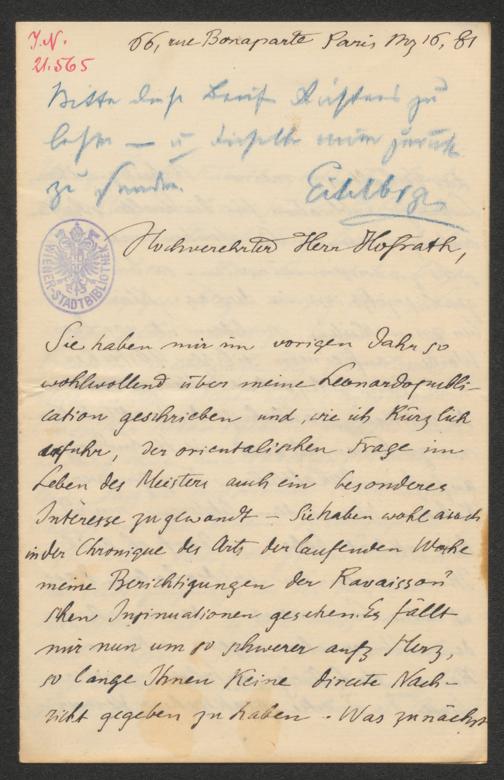 J.N.
21.565
66, rue Bonaparte Paris My 16, 81
Bitte diese Brief Richters zu
lesen — u dieselbe mir zurück
zu senden.
Eitelbrg
WIENER-STADTBIBLIOTHEK
Hochverehrter Herr Hofrath,
Sie haben mir im vorigen Jahr so
wohlwollend über meine Leonardopubli-
cation geschrieben und, wie ich kürzlich
erfuhr, der orientalischen Frage im
Leben des Meisters auch ein besonderes
Interesse zugewandt – Sie haben wohl auch
in der Chronique des Arts der laufenden Woche
meine Berichtigungen der Ravaisson'
schen Insinuationen gesehen. Es fällt
mir nun um so schwerer aufs Herz,
so lange Ihnen keine directe Nach-
richt gegeben zu haben. Was zunächst